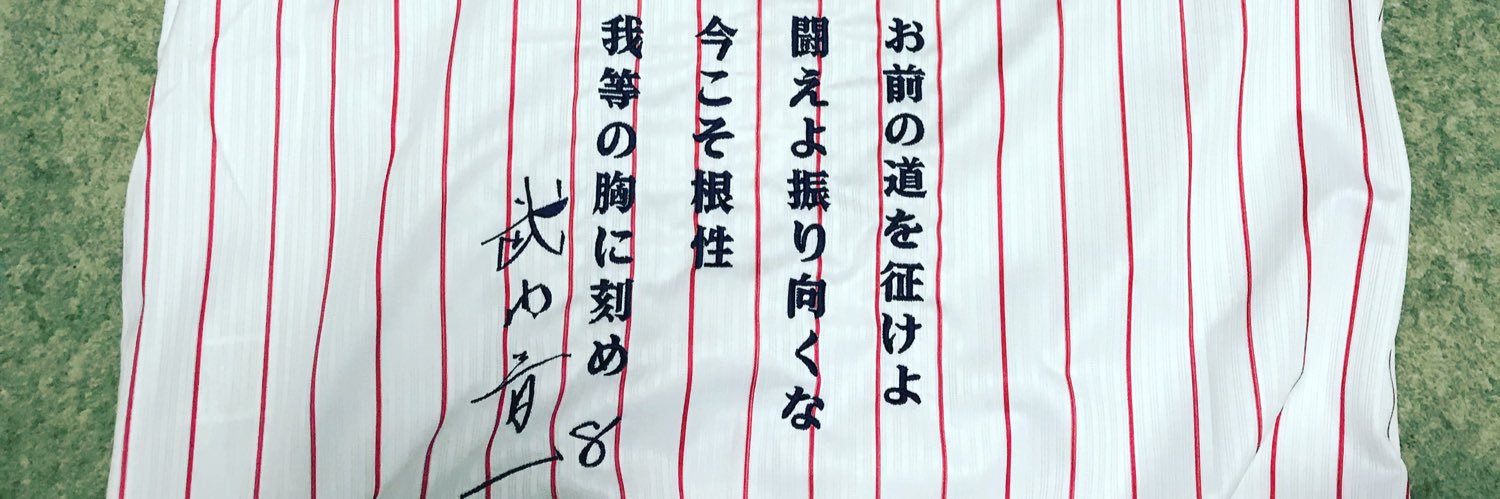 お前の道を征けよ
闘えよ振り向くな
今こそ根性
我等の胸に刻め
武内晋一
8